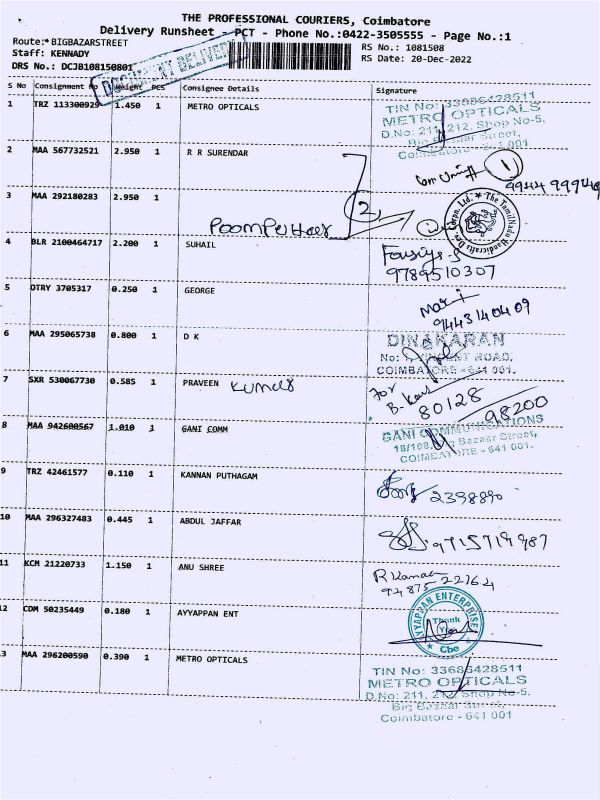 THE PROFESSIONAL COURIERS, Coimbatore
Delivery Runsheet - PCT - Phone No.:0422-3505555 - Page No.:1
Route:* BIGBAZARSTREET
RS No.: 1081508
Staff: KENNADY
RS Date: 20-Dec-2022
DRS No.: DCJB108150801
DOCUMENT DELIVERY
S No Consignment No Weight PCS Consignee Details Signature
1 TRZ 113300929 1.450 1 METRO OPTICALS
TIN No: 33686428511
METRO OPTICALS
D.No: 211, 212, Shop No-5.
Big Bazaar Street,
Coimbatore - 641 001
2 MAA 567732521 2.950 1 R R SURENDAR
1
3 MAA 292180283 2.950 1
2
Poompuhar
The Tamil Nadu Handicrafts Dev. Corpn. Ltd.
4 BLR 2100464717 2.200 1 SUHAIL
9789510307
5 OTRY 3705317 0.250 1 GEORGE
Mari
9443140409
6 MAA 295065738 0.800 1 D K
DINAKARAN
COIMBATORE - 641 001.
7 SXR 530067730 0.585 1 PRAVEEN Kumar
For
80128
98200
8 MAA 942600567 1.010 1 GANI COMM
GANI COMMUNICATIONS
18/108, Big Bazaar Street,
COIMBATORE - 641 001.
9 TRZ 42461577 0.110 1 KANNAN PUTHAGAM
2398890
10 MAA 296327483 0.445 1 ABDUL JAFFAR
9715719987
11 KCM 21220733 1.150 1 ANU SHREE
94875 22164
12 COM 50235449 0.180 1 AYYAPPAN ENT
AYYAPPAN ENTERPRISES
Thank
You
Cbe
13 MAA 296200590 0.390 1 METRO OPTICALS
TIN No: 33686428511
METRO OPTICALS
D.No: 211, 212, Shop No-5.
Big Bazaar Street,
Coimbatore - 641 001